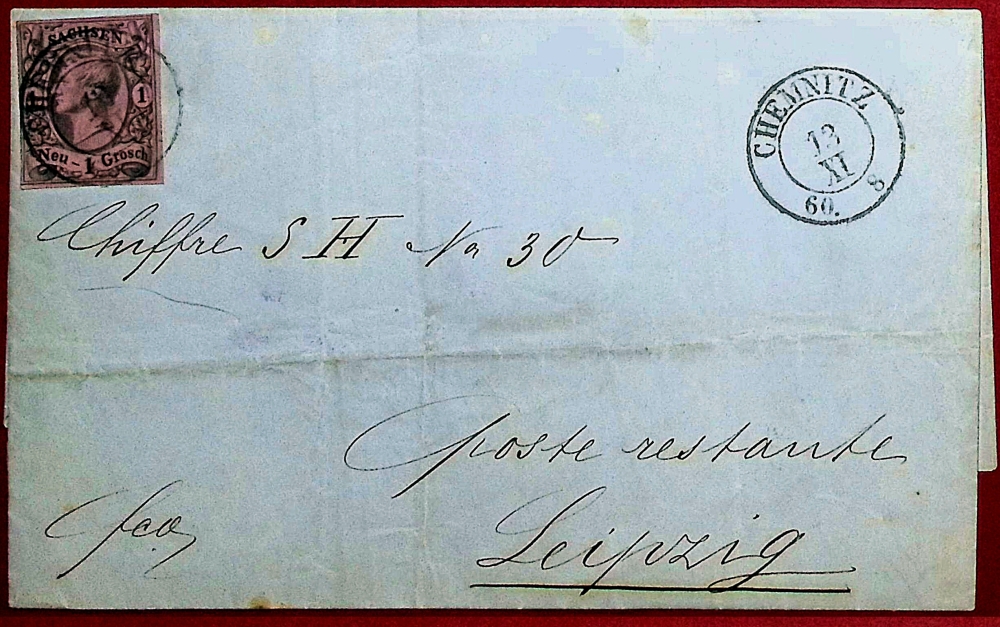 SACHSEN
1
Neu - 1 Grosch
CHEMNITZ
13
XI
60. 8
Chiffre S H No 30
poste restante
fco
Leipzig